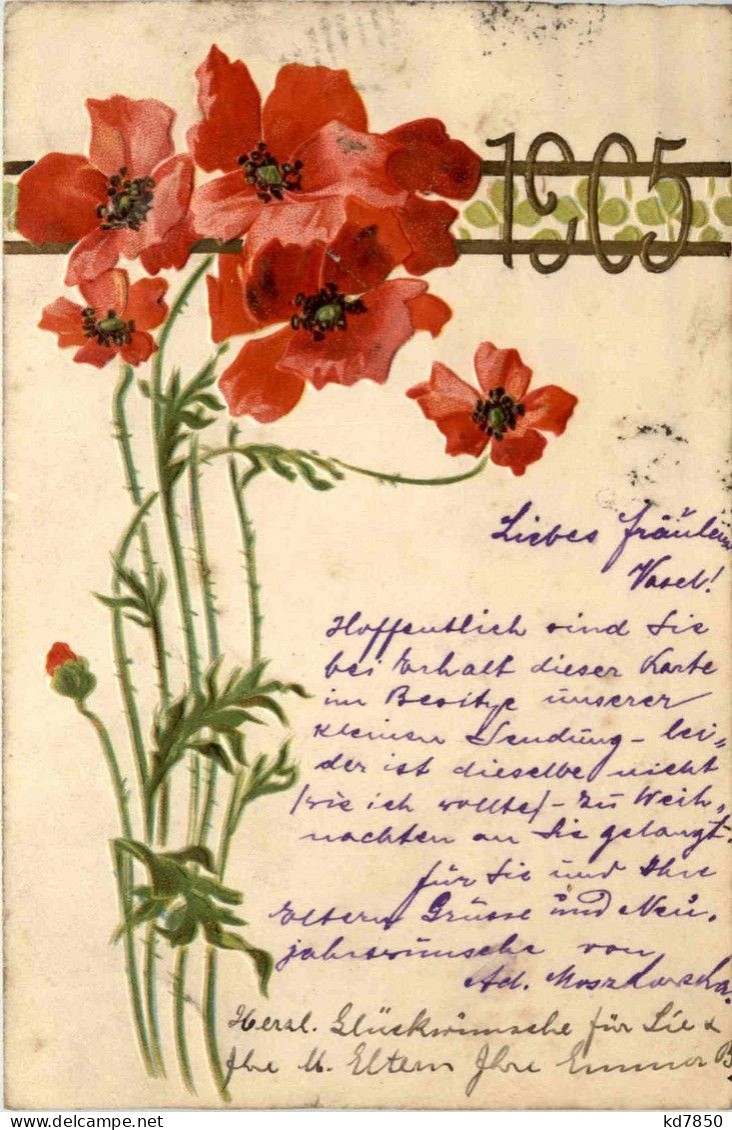 1905
Liebes Fräulein
Vasel!
Hoffentlich sind Sie
bei Erhalt dieser Karte
im Besitze unserer
kleinen Sendung – lei„
der ist dieselbe nicht
(wie ich wollte) – zu Weih„
nachten an Sie gelangt.
Für Sie und Ihre
Eltern Grüsse und Neu„
jahrswünsche von
Ad.
Herzl. Glückwünsche für Sie &
Ihre Eltern Ihre Emma
kd7850